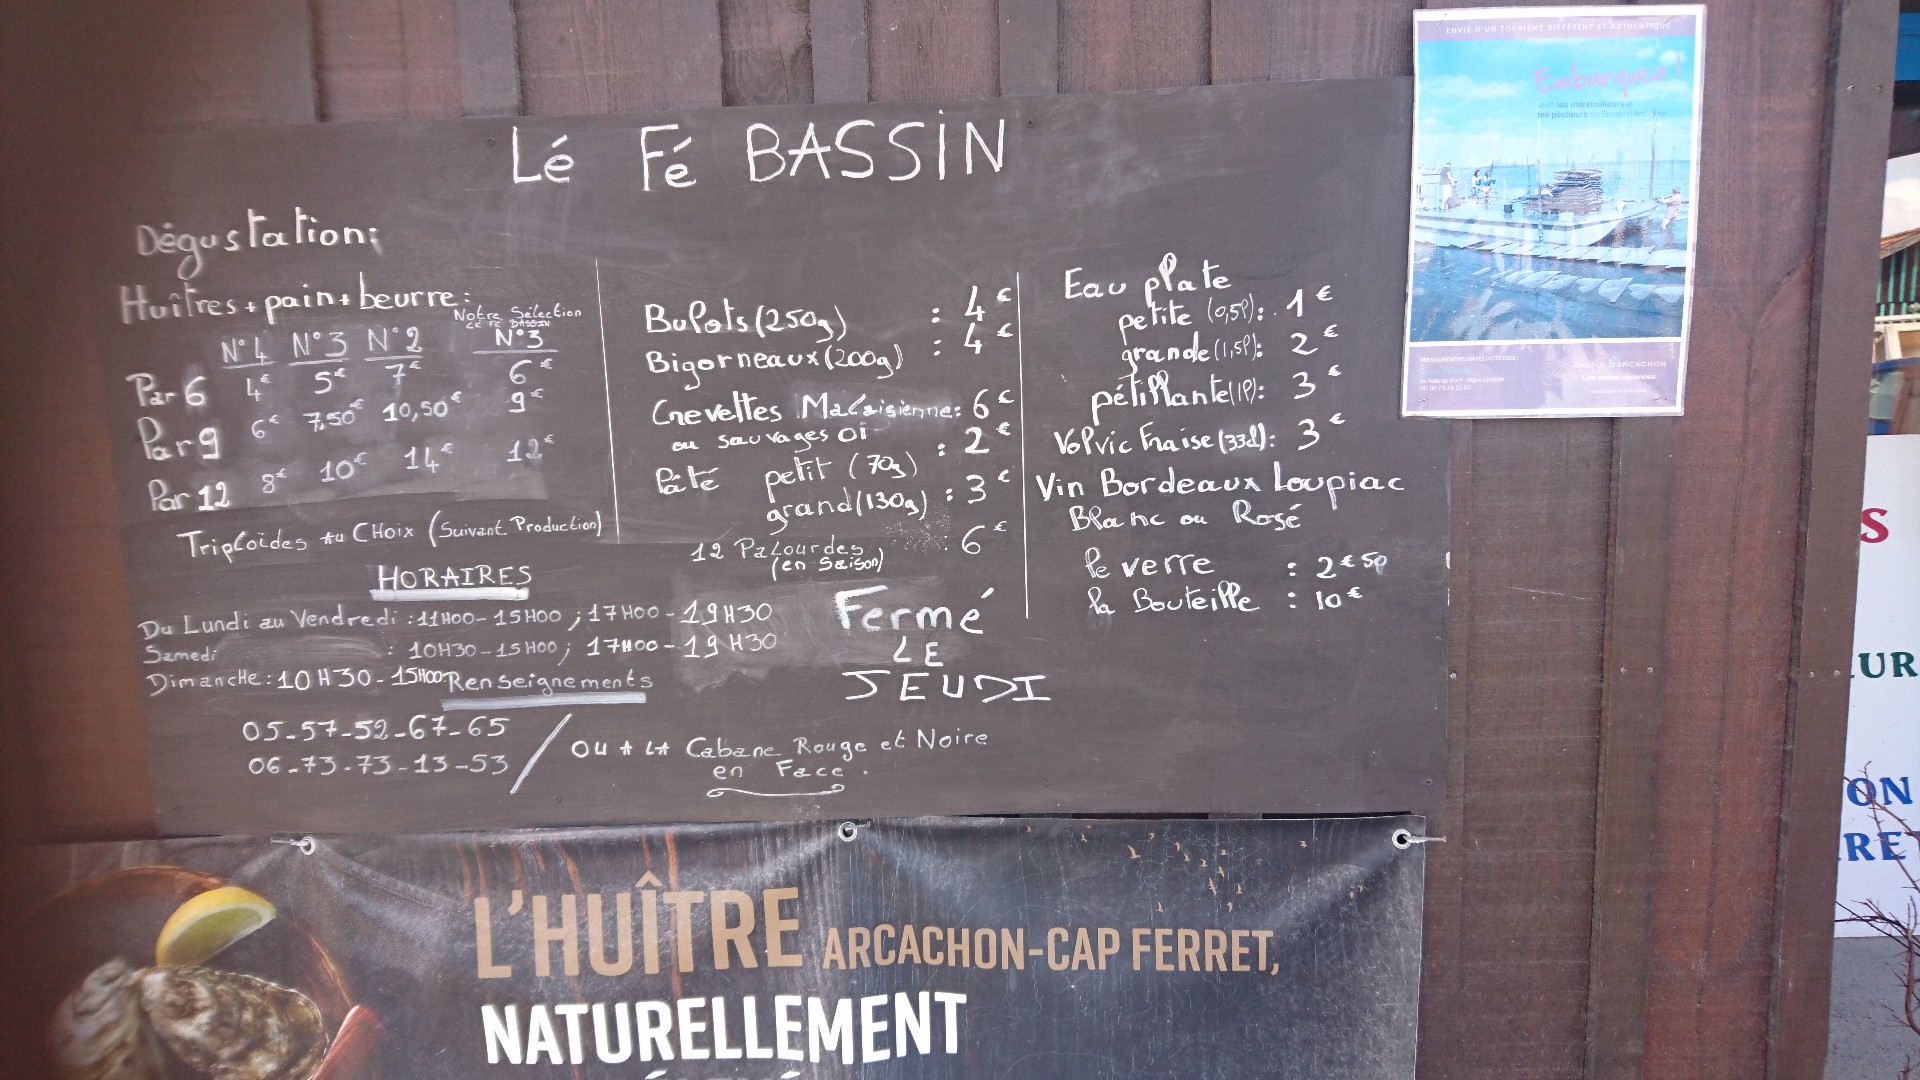 Lé Fé BASSIN
Dégustation:
Huîtres + pain + beurre:
Notre Sélection
LÉ FÉ BASSIN
N°4 N°3 N°2 N°3
Par 6 4€ 5€ 7€ 6€
Par 9 6€ 7,50€ 10,50€ 9€
Par 12 8€ 10€ 14€ 12€
Triploïdes Au CHoix (Suivant Production)
Bulots (250g) : 4€
Bigorneaux (200g) : 4€
Crevettes : 6€
ou sauvages
Pâté petit (70g) : 2€
grand (130g) : 3€
12 Palourdes 6€
(en Saison)
Eau plate
petite (0,5l): 1€
grande (1,5l): 2€
pétillante (1l): 3€
Volvic Fraise (33cl): 3€
Vin Bordeaux Loupiac
Blanc ou Rosé
le verre : 2€50
la Bouteille : 10€
HORAIRES
Du Lundi au Vendredi : 11H00 - 15H00 ; 17H00 - 19H30
Samedi : 10H30 - 15H00 ; 17H00 - 19H30
Dimanche : 10H30 - 15H00
Fermé
LE
JEUDI
Renseignements
05-57-52-67-65
06-73-73-13-53
OU A LA Cabane Rouge et Noire
en Face.
ENVIE D'UN TOURISME DIFFÉRENT ET AUTHENTIQUE
Embarquez !
avec les ostréiculteurs et
les pêcheurs du Bassin d'Arcachon
BASSIN D'ARCACHON
S
UR
ON
RE
L'HUÎTRE ARCACHON-CAP FERRET,
NATURELLEMENT